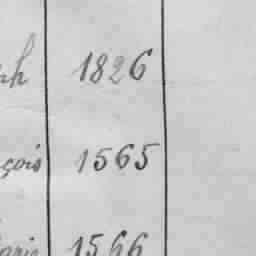 1826
çois 1565
1566